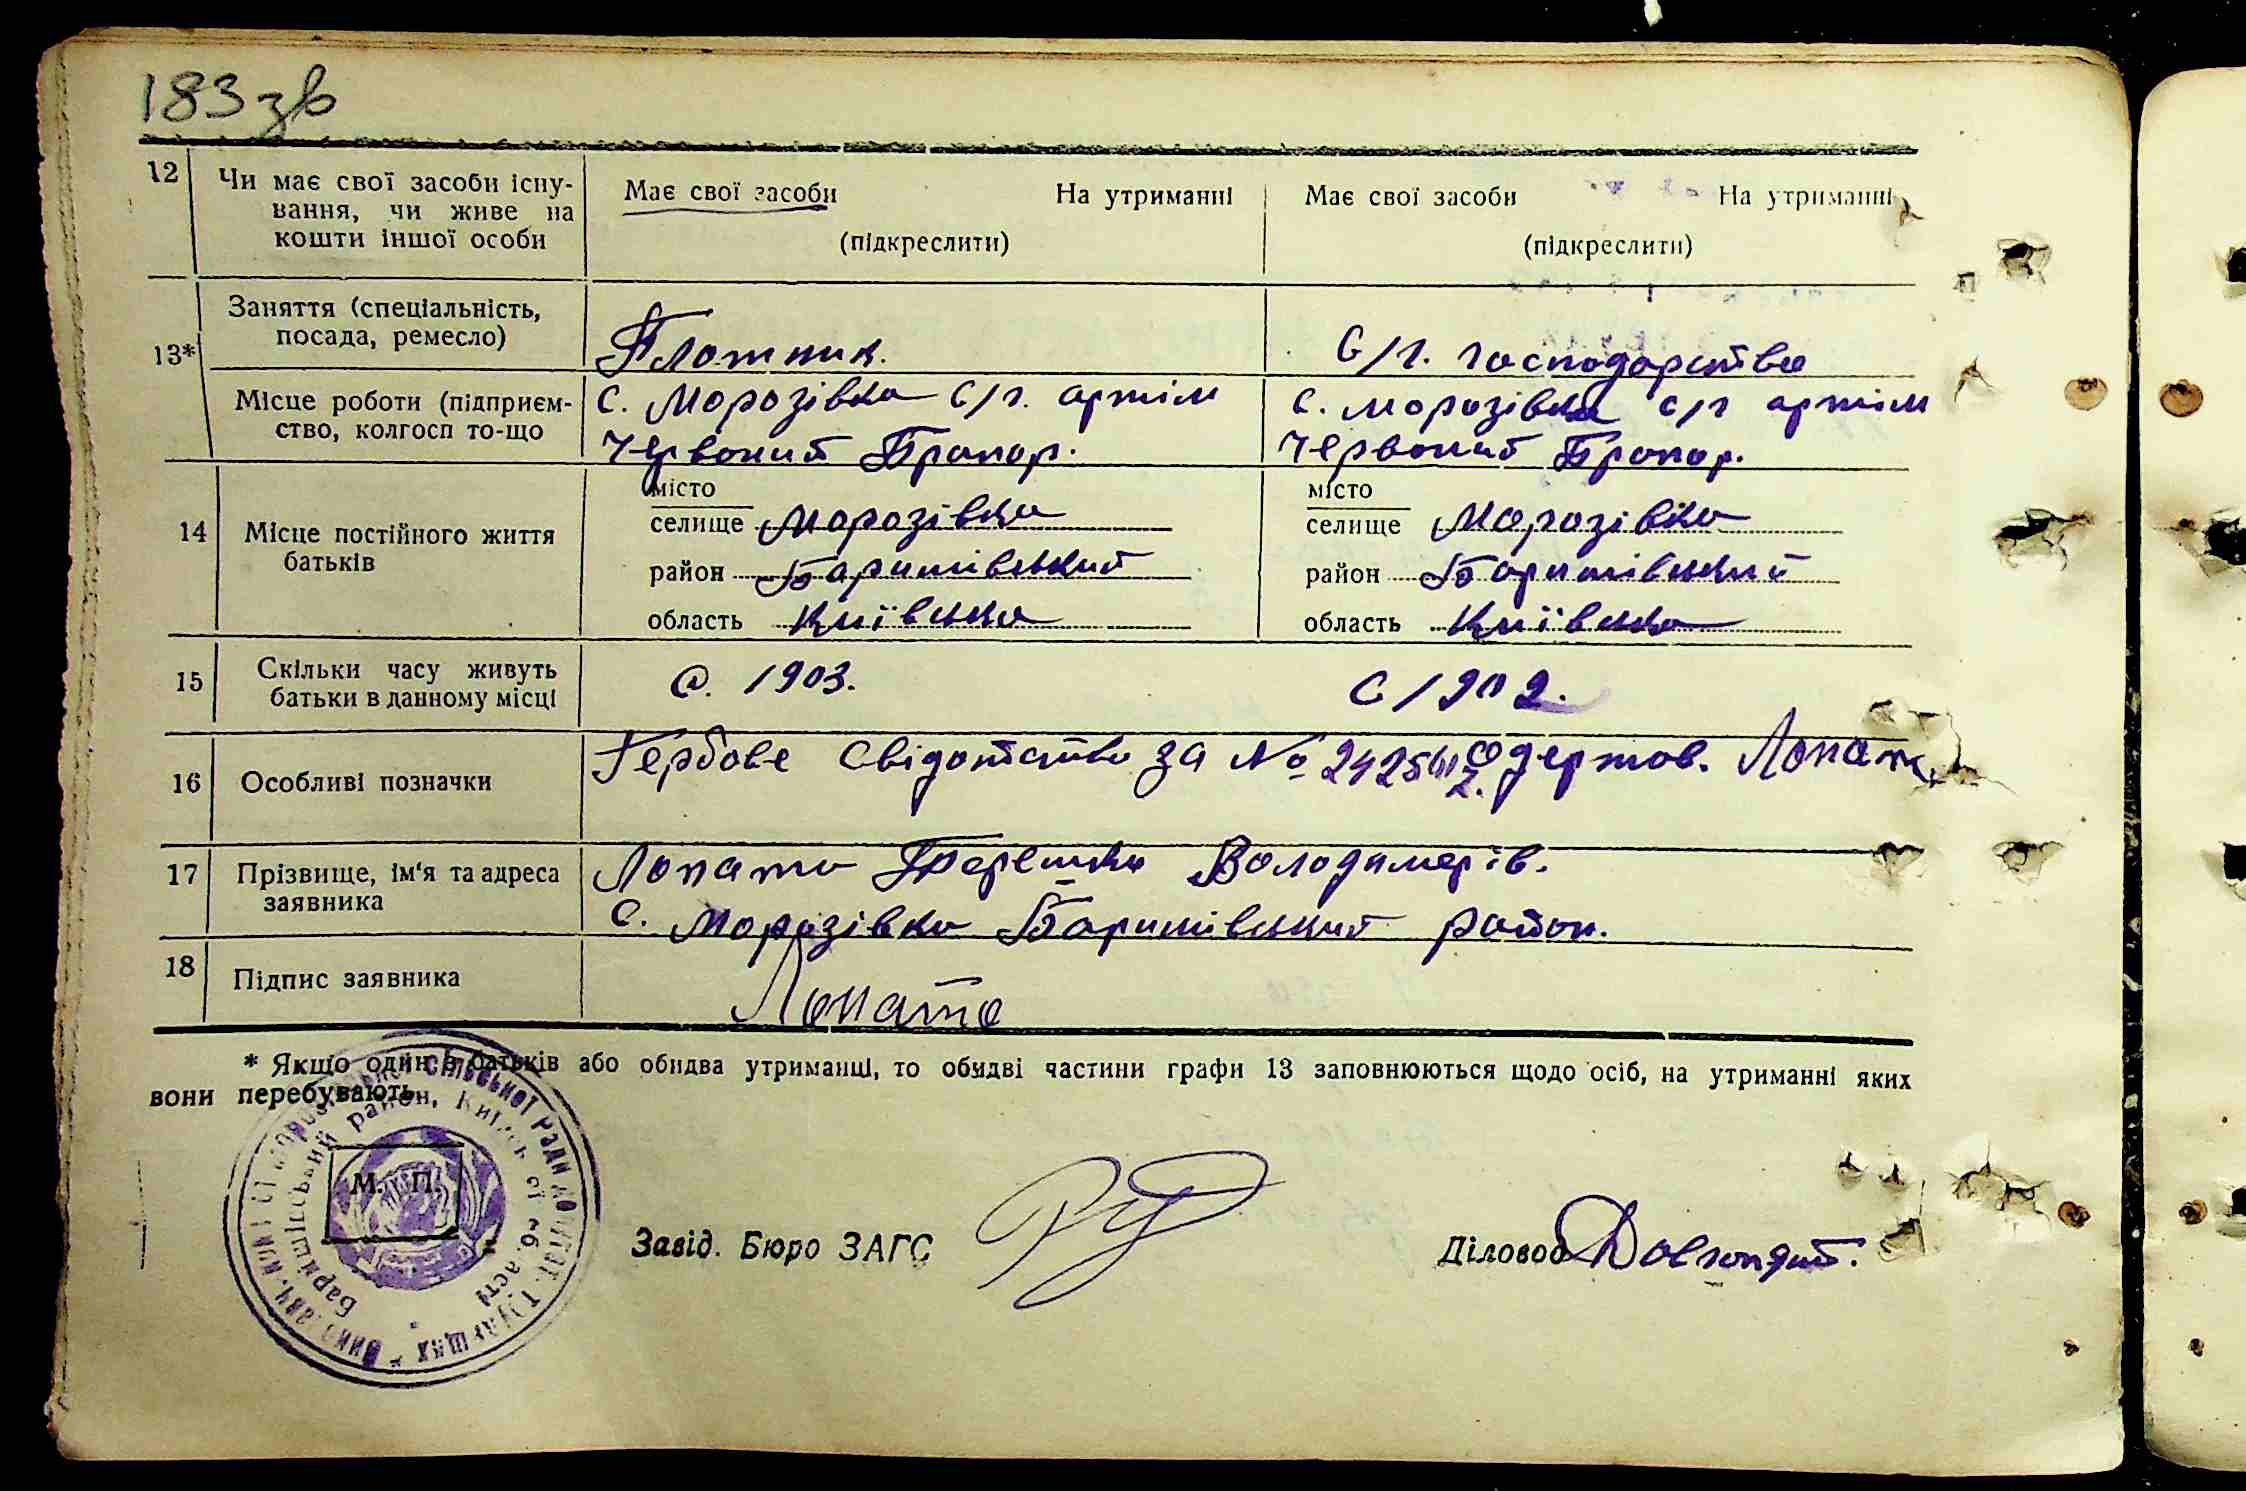 183 зв
12 Чи має свої засоби існу-
вання, чи живе на
кошти іншої особи
Має свої засоби На утриманні
(підкреслити)
Має свої засоби На утриманні
(підкреслити)
13* Заняття (спеціальність,
посада, ремесло)
Плотник.
С/г. господарство
Місце роботи (підприєм-
ство, колгосп то-що
с. Морозівка с/г. артіл
Червоний Прапор.
с. Морозівка с/г артіл
Червоний Прапор.
14 Місце постійного життя
батьків
місто
селище Морозівка
район Баришівський
область Київська
місто
селище Морозівка
район Баришівський
область Київська
15 Скільки часу живуть
батьки в данному місці
С. 1903.
С 1902.
16 Особливі позначки
Гербове свідотство за №
одержов. Лопат
17 Прізвище, ім'я та адреса
заявника
Лопата Терешко Володимерів.
с. Морозівка Баришівський район.
18 Підпис заявника
Лопата
* Якщо один з батьків або обидва утриманці, то обидві частини графи 13 заповнюються щодо осіб, на утриманні яких
вони перебувають.
сільської ради депутат. трудящих * Виконавч. ком
Баришівський район, Київської області
М. П.
Завід. Бюро ЗАГС
Діловод